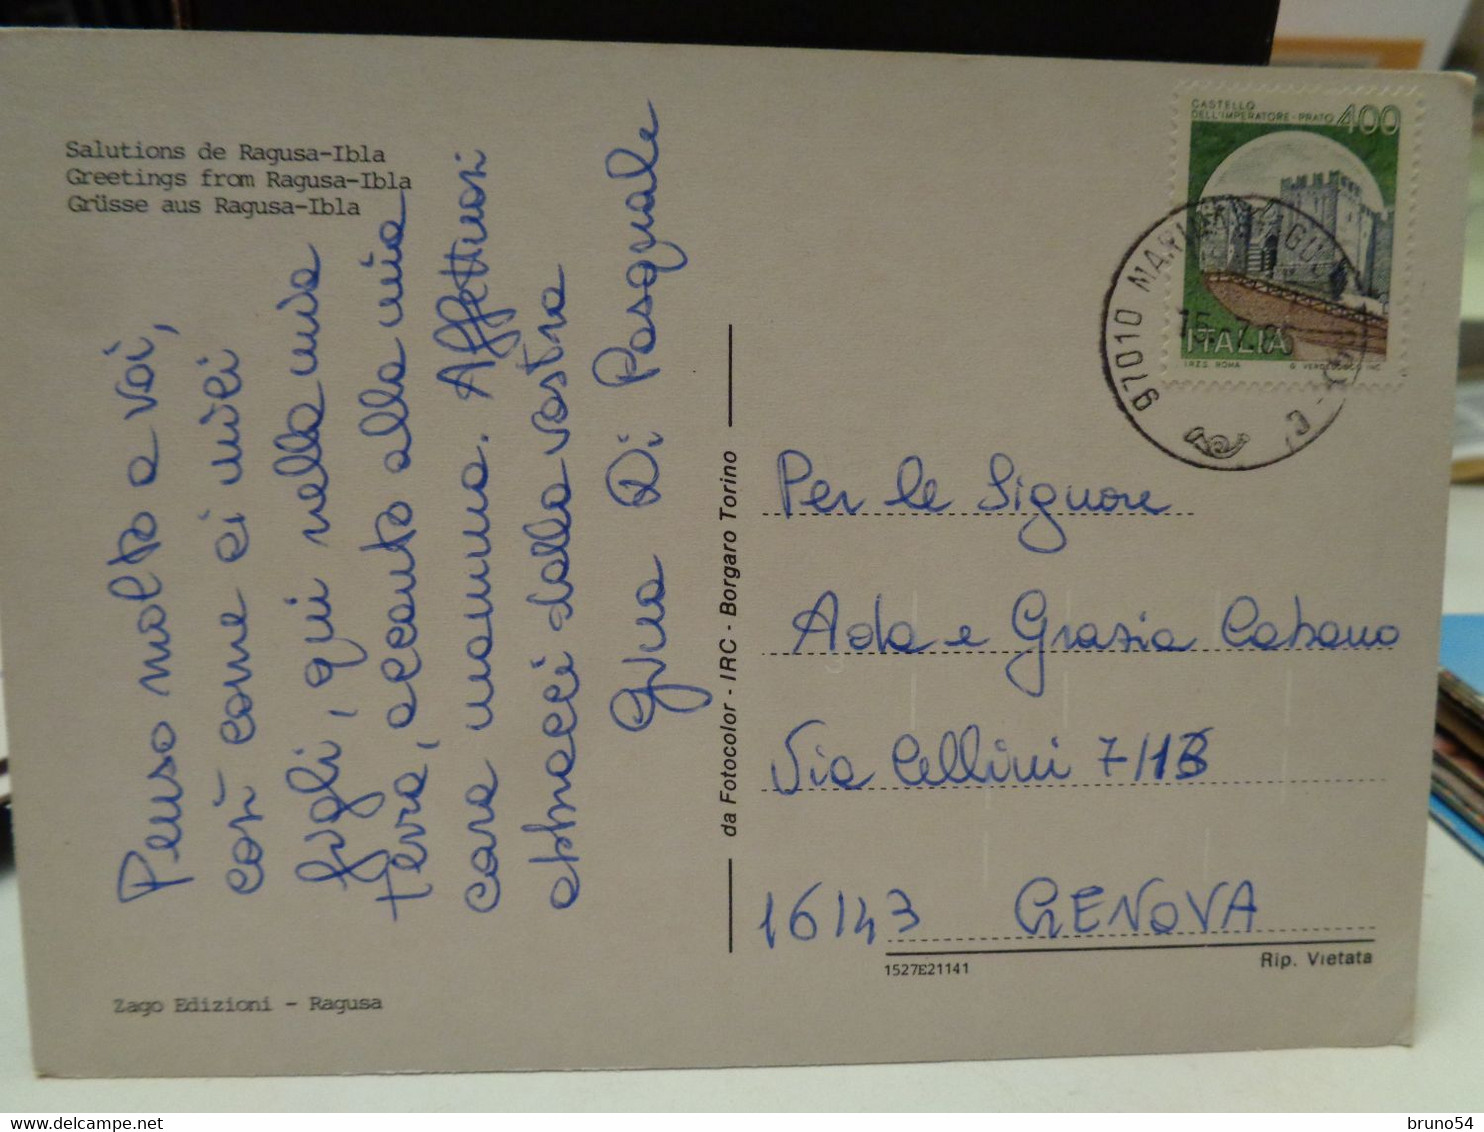 Salutions de Ragusa-Ibla
Greetings from Ragusa-Ibla
Grüsse aus Ragusa-Ibla
Penso molto a voi,
così come ci
figli, qui nella mia
terra, accanto alla mia
cara mamma. Affettuosi
abbracci dalla vostra
Di Pasquale
Zago Edizioni - Ragusa
da Fotocolor - IRC - Borgaro Torino
CASTELLO
DELL'IMPERATORE - PRATO 400
ITALIA
I.P.Z.S. ROMA
97010 MARINA
Per le Signore
Ada e Grazia Cabano
Via Cellini 7/13
16143 GENOVA
1527E21141
Rip. Vietata
bruno54